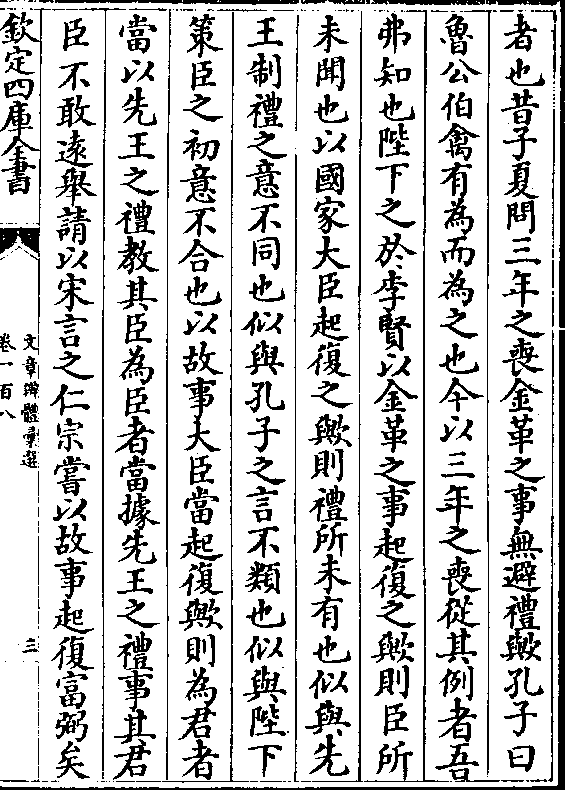 者也昔子夏問三年之喪金革之事無避禮歟孔子曰
魯公伯禽有為而為之也今以三年之喪從其例者吾
弗知也陛下之於李賢以金革之事起復之歟則臣所
未聞也以國家大臣起復之歟則禮所未有也似與先
王制禮之意不同也似與孔子之言不類也似與陛下
策臣之初意不合也以故事大臣當起復歟則為君者
當以先王之禮教其臣為臣者當據先王之禮事其君
臣不敢遠舉請以宋言之仁宗嘗以故事起復富弼矣
欽定四庫全書
文章辨體彙選
卷一百八
三